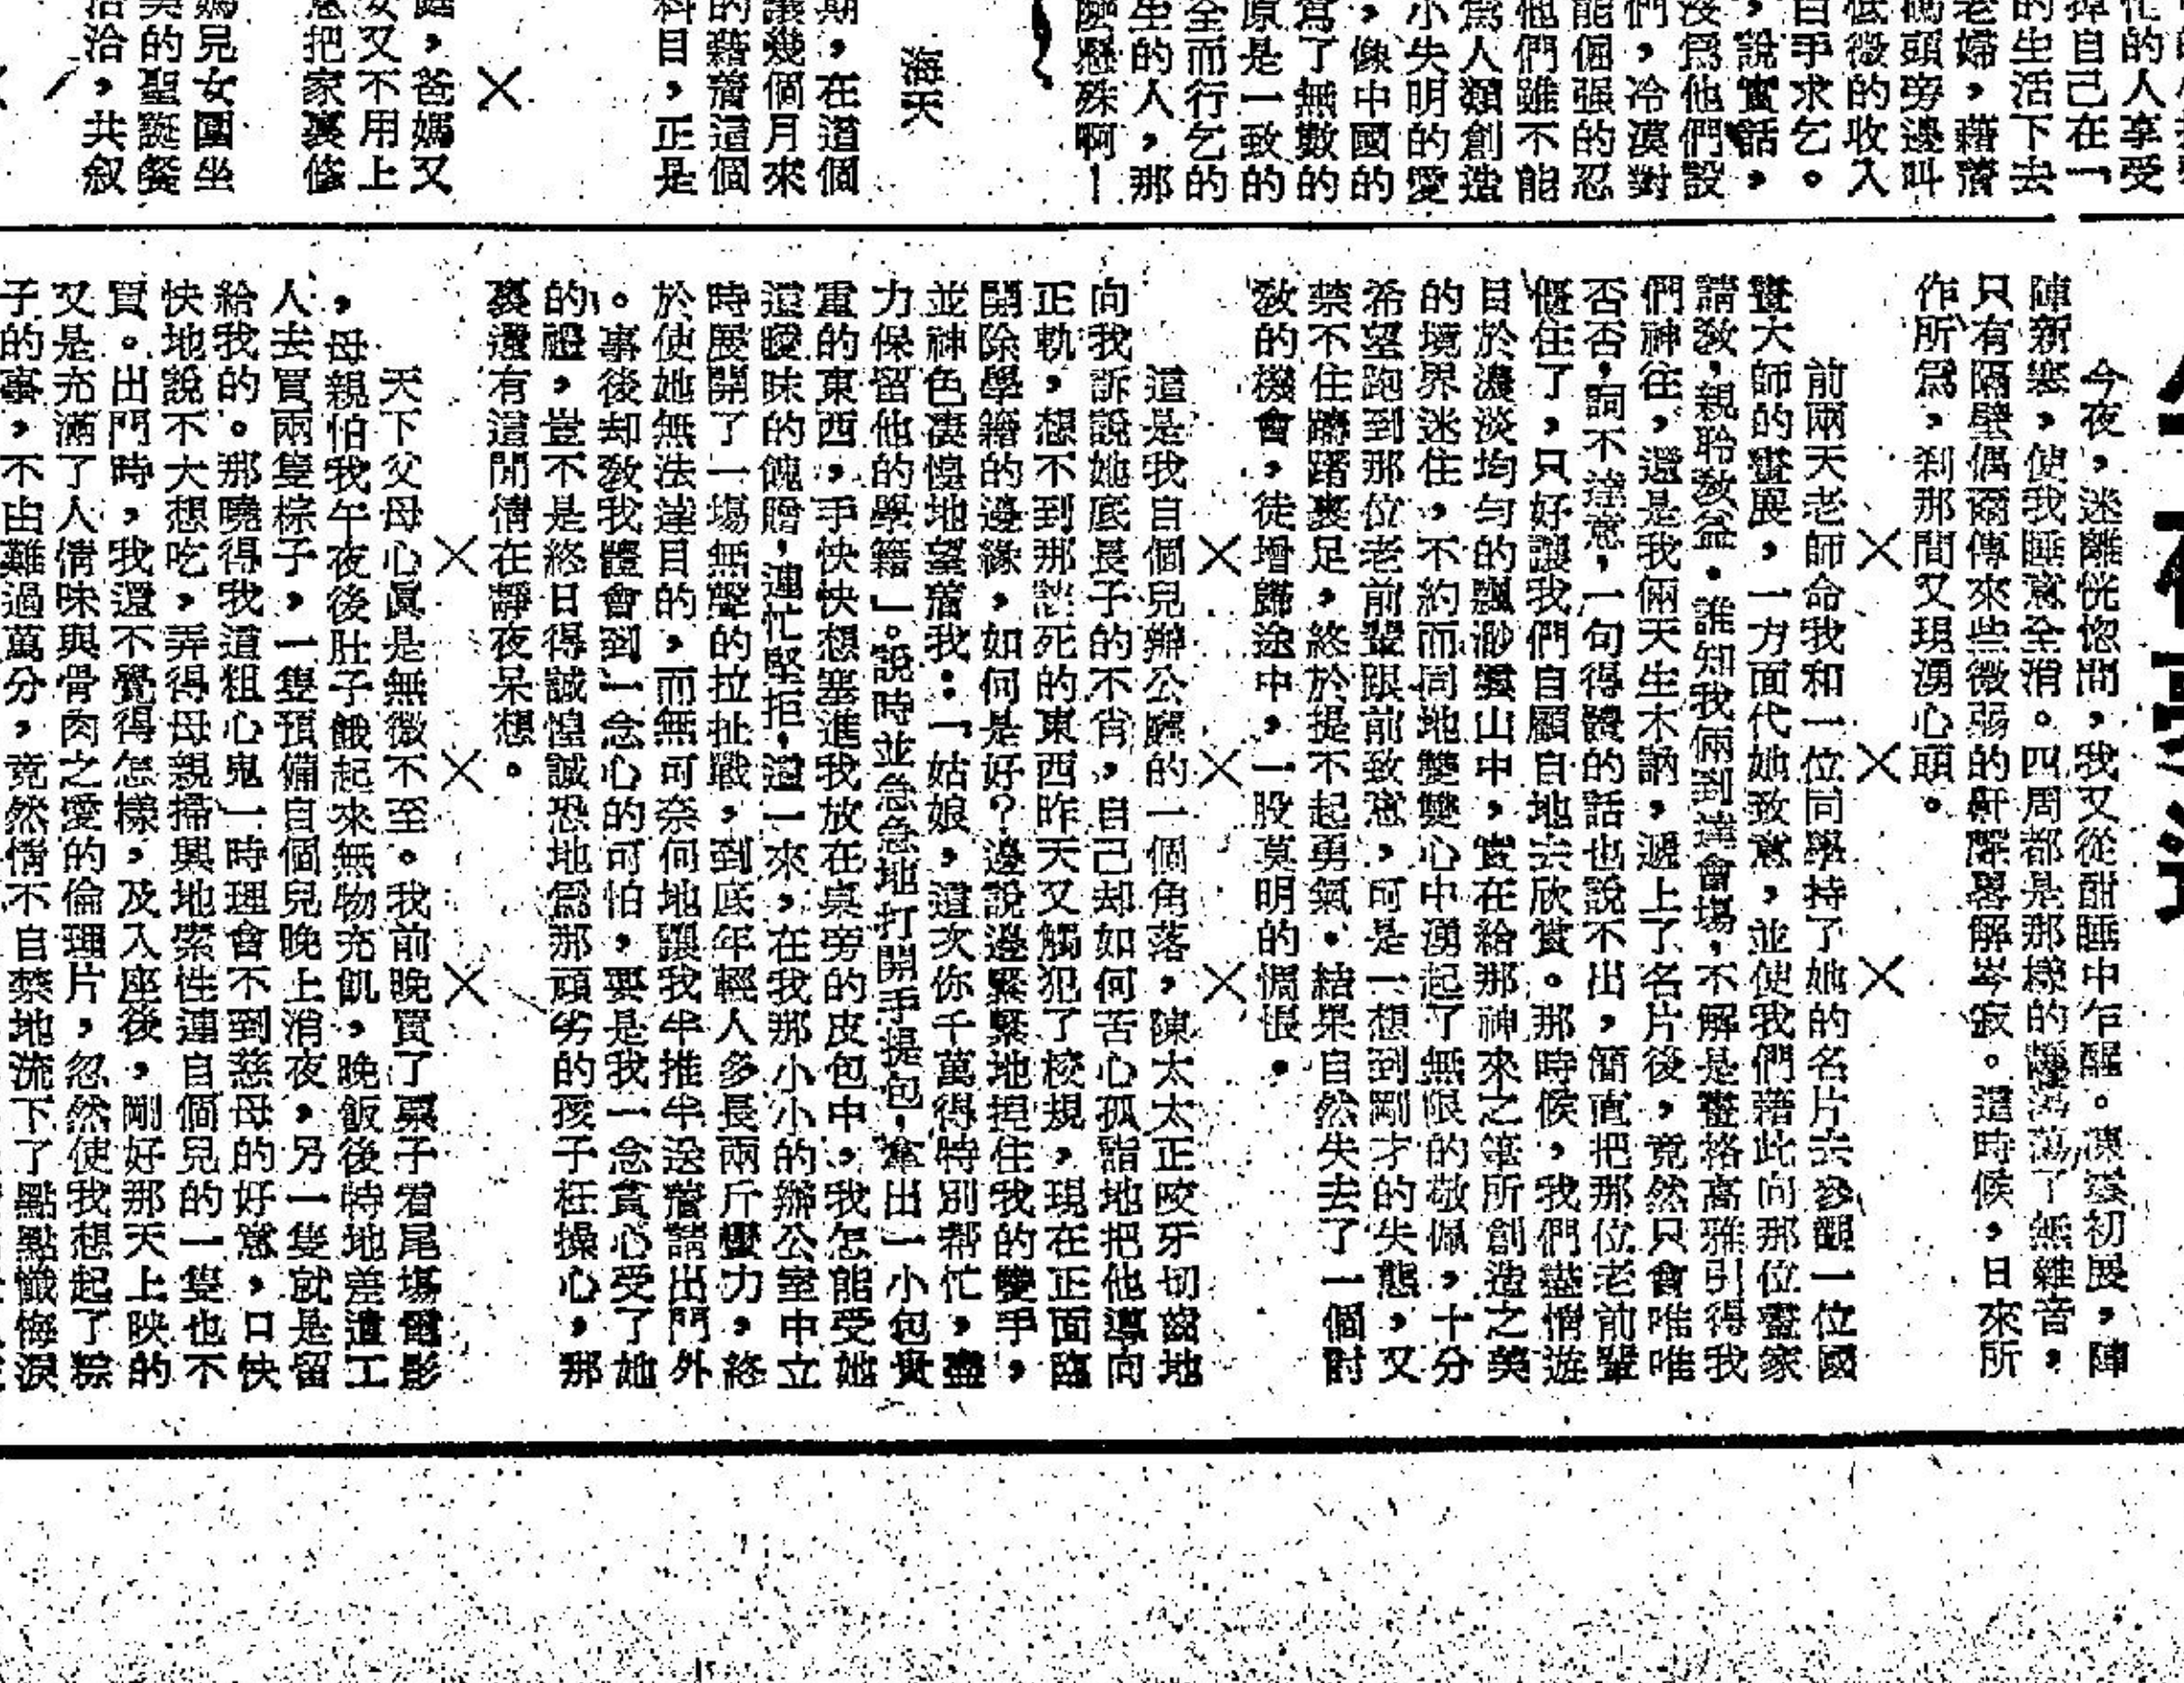 忙的人享受
掉自己在「
的生活下去
老婦，藉着
碼頭旁邊叫
低微的收入
白手求乞。
，說實話，
沒爲他們設
們，冷漠對
能倔强的忍
他們雖不能
爲人類創造
小失明的愛
，像中國的
爲了無數的
原是一致的
全而行乞的
生的人，那
麼懸殊啊！
海天
期，在這個
議幾個月來
的藉着這個
科目，正是
庭，爸媽又
女又不用上
意把家裏修
媽兒女圍坐
美的聖誕餐
洽洽，共叙
今夜，迷離恍惚間，我又從酣睡中乍醒。凍寒初展，陣
陣新寒，使我睡意全消。四周都是那樣的靜謐了無雜音，
只有隔壁偶爾傳來些微弱的鼾聲畧解岑寂。這時候，日來所
作所爲，刹那間又現湧心頭。
× × ×
前兩天老師命我和一位同學持了她的名片去參觀一位國
畫大師的畫展，一方面代她致意，並使我們藉此向那位畫家
請教，親聆教益。誰知我倆到達會場，不解是畫格高雅引得我
們神往，還是我倆天生木訥，遞上了名片後，竟然只會唯唯
否否，詞不達意，一句得體的話也說不出，簡直把那位老前輩
僵住了，只好讓我們自顧自地去欣賞。那時候，我們儘憎游
目於濃淡均勻的飄渺雲山中，實在給那神來之筆所創造之美
的境界迷住，不約而同地雙雙心中湧起了無限的敬佩，十分
希望跑到那位老前輩跟前致意，可是一想到剛才的失態，又
禁不住躊躇裹足，終於提不起勇氣。結果自然失去了一個討
教的機會，徒增歸途中，一股莫明的惆悵。
× × ×
這是我自個兒辦公廳的一個角落，陳太太正咬牙切齒地
向我訴說她底長子的不肖，自己却如何苦心孤詣地把他導向
正軌，想不到那該死的東西昨天又觸犯了校規，現在正面臨
開除學籍的邊緣，如何是好？邊說邊緊緊地握住我的雙手，
並神色凄惶地望着我：「姑娘，這次你千萬得特別帮忙，盡
力保留他的學籍」。說時並急急地打開手提包，拿出一小包貴
重的東西，手快快想塞進我放在桌旁的皮包中，我怎能受她
這曖昧的餽贈，連忙堅拒，這一來，在我那小小的辦公室中立
時展開了一塲無聲的拉扯戰，到底年輕人多長兩斤蠻力，終
於使她無法達目的，而無可奈何地讓我半推半送着請出門外
。事後却教我體會到一念心的可怕，要是我一念貪心受了她
的禮，豈不是終日得誠惶誠恐地爲那頑劣的孩子枉操心，那
裏還有這閒情在靜夜呆想。
× × ×
天下父母心眞是無微不至。我前晚買了票子看尾塲電影
，母親怕我午夜後肚子餓起來無物充飢，晚飯後特地差遣工
人去買兩隻粽子，一隻預備自個兒晚上消夜，另一隻就是留
給我的。那曉得我這粗心鬼一時理會不到慈母的好意，口快
快地說不大想吃，弄得母親掃興地索性連自個兒的一隻也不
買。出門時，我還不覺得怎樣，及入座後，剛好那天上映的
又是充滿了人情味與骨肉之愛的倫理片，忽然使我想起了粽
子的事，不由難過萬分，竟然情不自禁地流下了點點懺悔淚